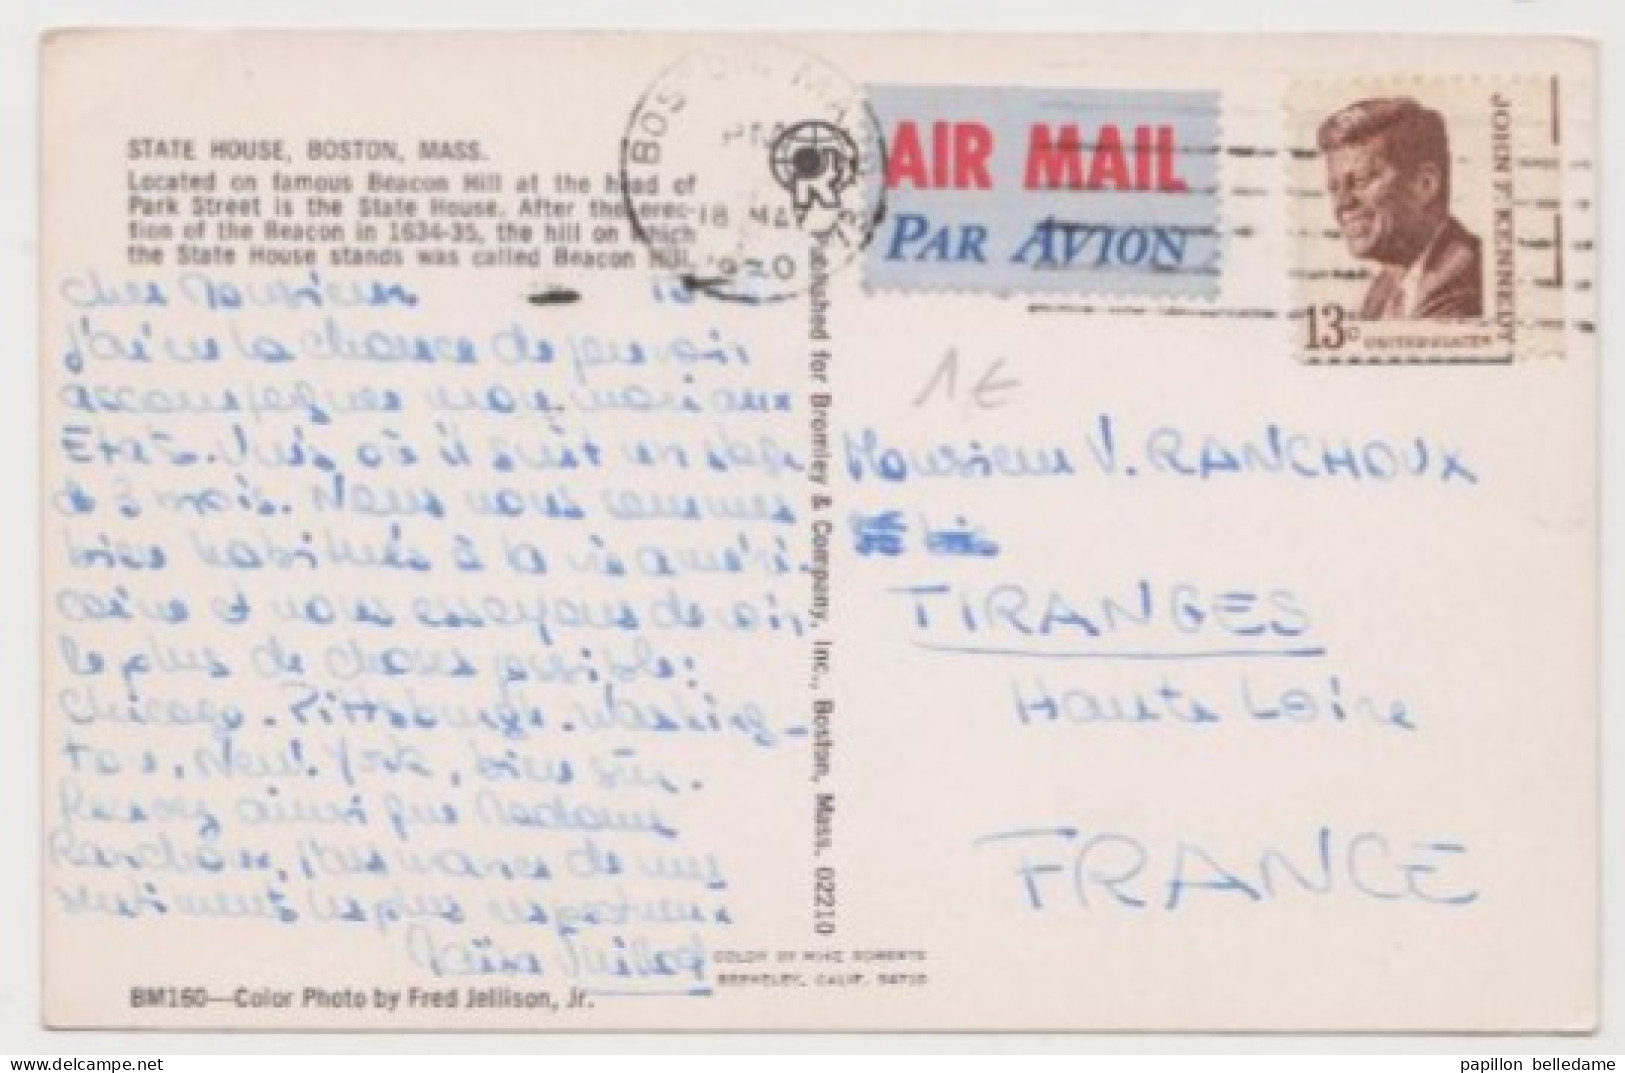 STATE HOUSE, BOSTON, MASS.
Located on famous Beacon Hill at the head of
Park Street is the State House. After the erec-
tion of the Beacon in 1634-35, the hill on which
the State House stands was called Beacon Hill.
Cher Monsieur
J'ai eu la chance de pouvoir
accompagner mon mari aux
Etats-Unis où il suit un stage
de 3 mois. Nous nous sommes
bien habitués à la vie améri-
caine et nous essayons de voir
le plus de choses possible:
Chicago. Pittsburgh. Washing-
ton, New-York, bien sûr.
Recevez ainsi que Madame
Ranchoux, l'assurance de mes
sentiments les plus respectueux
BM160—Color Photo by Fred Jellison, Jr.
Published for Bromley & Company, Inc., Boston, Mass. 02210
COLOR BY MIKE ROBERTS
BERKELEY, CALIF. 94710
BOSTON, MA
PM
18 MAY
AIR MAIL
PAR AVION
JOHN F. KENNEDY
13c UNITED STATES
1€
Monsieur V. RANCHOUX
TIRANGES
Haute Loire
FRANCE
papillon belledame